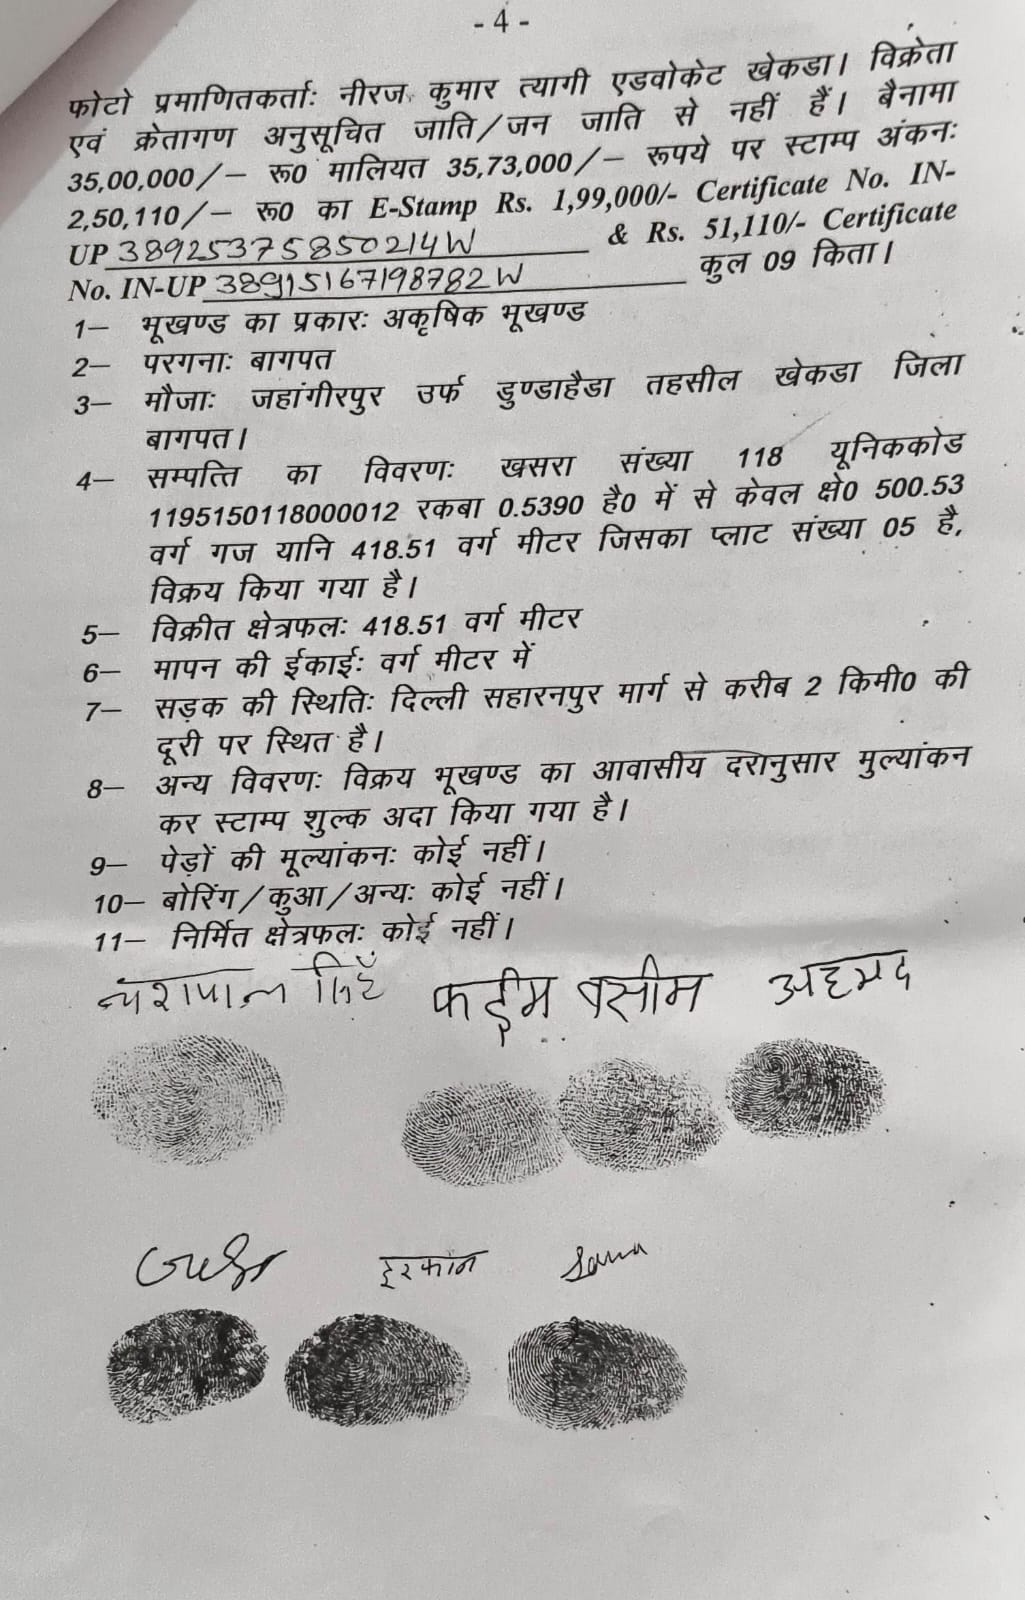 - 4 -
फोटो प्रमाणितकर्ताः नीरज कुमार त्यागी एडवोकेट खेकडा। विक्रेता
एवं क्रेतागण अनुसूचित जाति/जन जाति से नहीं हैं। बैनामा
35,00,000/— रू0 मालियत 35,73,000/— रूपये पर स्टाम्प अंकनः
2,50,110/— रू0 का E-Stamp Rs. 1,99,000/- Certificate No. IN-
UP 38925375850214W & Rs. 51,110/- Certificate
No. IN-UP 38915167198782W कुल 09 किता।
1— भूखण्ड का प्रकारः अकृषिक भूखण्ड
2— परगनाः बागपत
3— मौजाः जहांगीरपुर उर्फ डुण्डाहैडा तहसील खेकडा जिला
बागपत।
4— सम्पत्ति का विवरणः खसरा संख्या 118 यूनिककोड
1195150118000012 रकबा 0.5390 है0 में से केवल क्षे0 500.53
वर्ग गज यानि 418.51 वर्ग मीटर जिसका प्लाट संख्या 05 है,
विक्रय किया गया है।
5— विक्रीत क्षेत्रफलः 418.51 वर्ग मीटर
6— मापन की ईकाईः वर्ग मीटर में
7— सड़क की स्थितिः दिल्ली सहारनपुर मार्ग से करीब 2 किमी0 की
दूरी पर स्थित है।
8— अन्य विवरणः विक्रय भूखण्ड का आवासीय दरानुसार मुल्यांकन
कर स्टाम्प शुल्क अदा किया गया है।
9— पेड़ों की मूल्यांकनः कोई नहीं।
10— बोरिंग/कुआ/अन्यः कोई नहीं।
11— निर्मित क्षेत्रफलः कोई नहीं।
यशपाल सिहँ फईम वसीम अहमद
इरकान